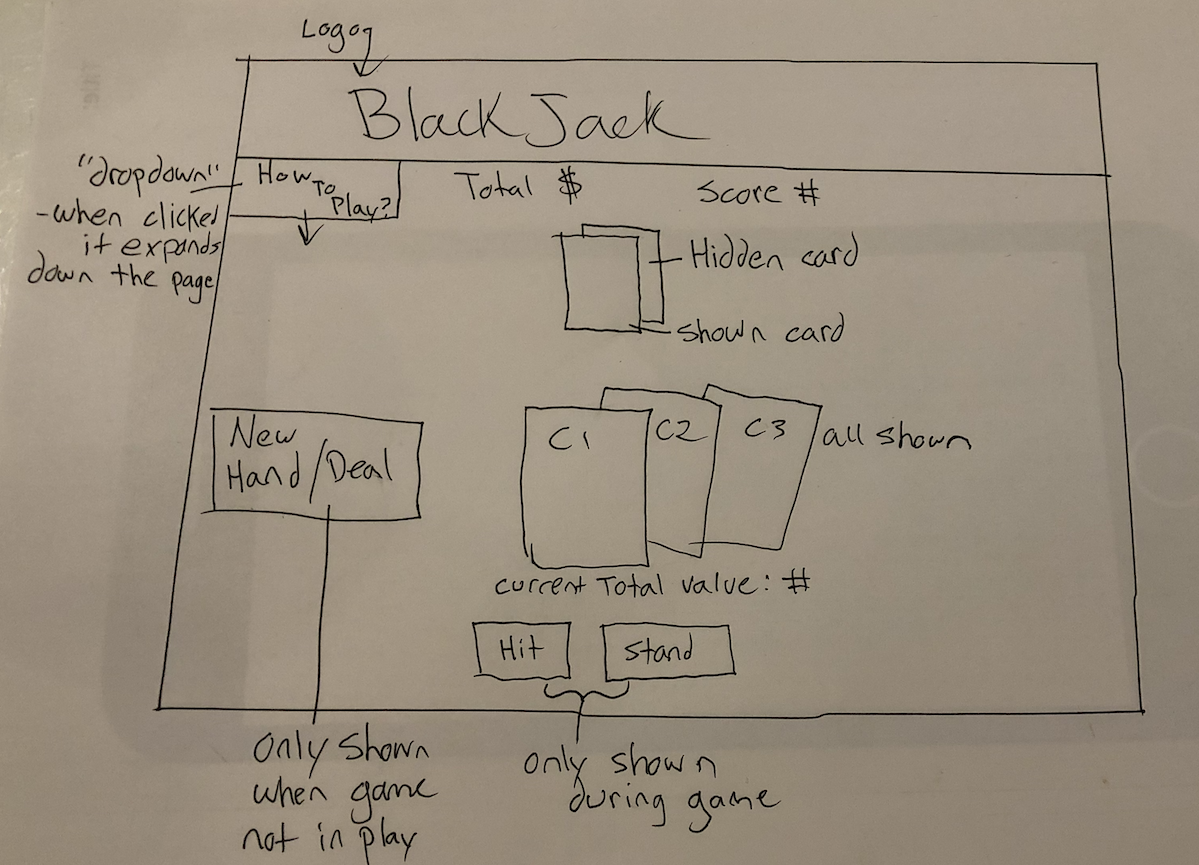 Logo
BlackJack
"dropdown"
-when clicked
it expands
down the page
How To Play?
Total $
Score #
Hidden card
shown card
New
Hand/Deal
C1
C2
C3
all shown
current Total value: #
Hit
Stand
only shown
when game
not in play
only shown
during game